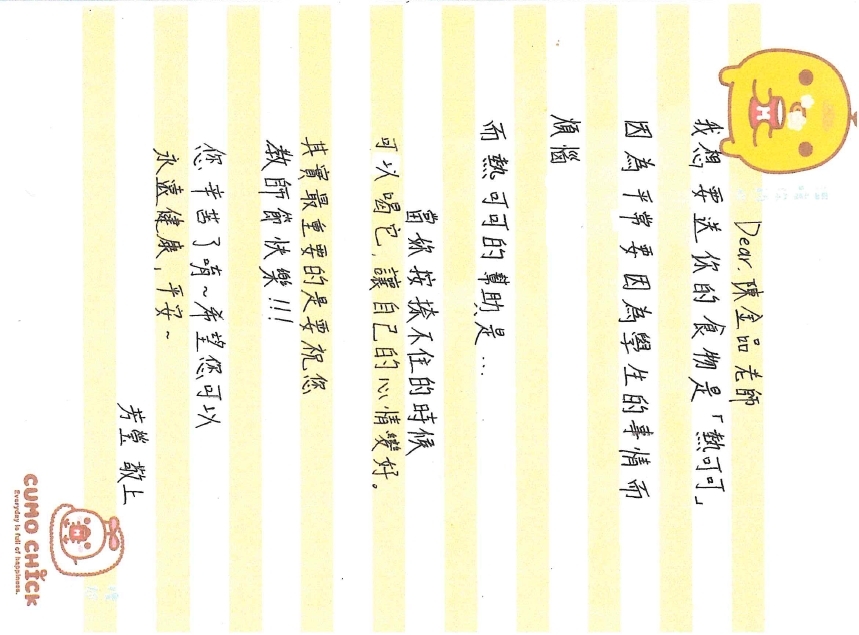 Dear. 陳金品老師
我想要送你的食物是「熱可可」
因為平常要因為學生的事情而
煩惱
而熱可可的幫助是...
當妳按捺不住的時候
可以喝它,讓自己的心情變好。
其實最重要的是要祝您
教師節快樂!!!
您辛苦了唷~希望您可以
永遠健康,平安~
芳瑩 敬上
CUMO CHICK
Everyday is full of happiness.